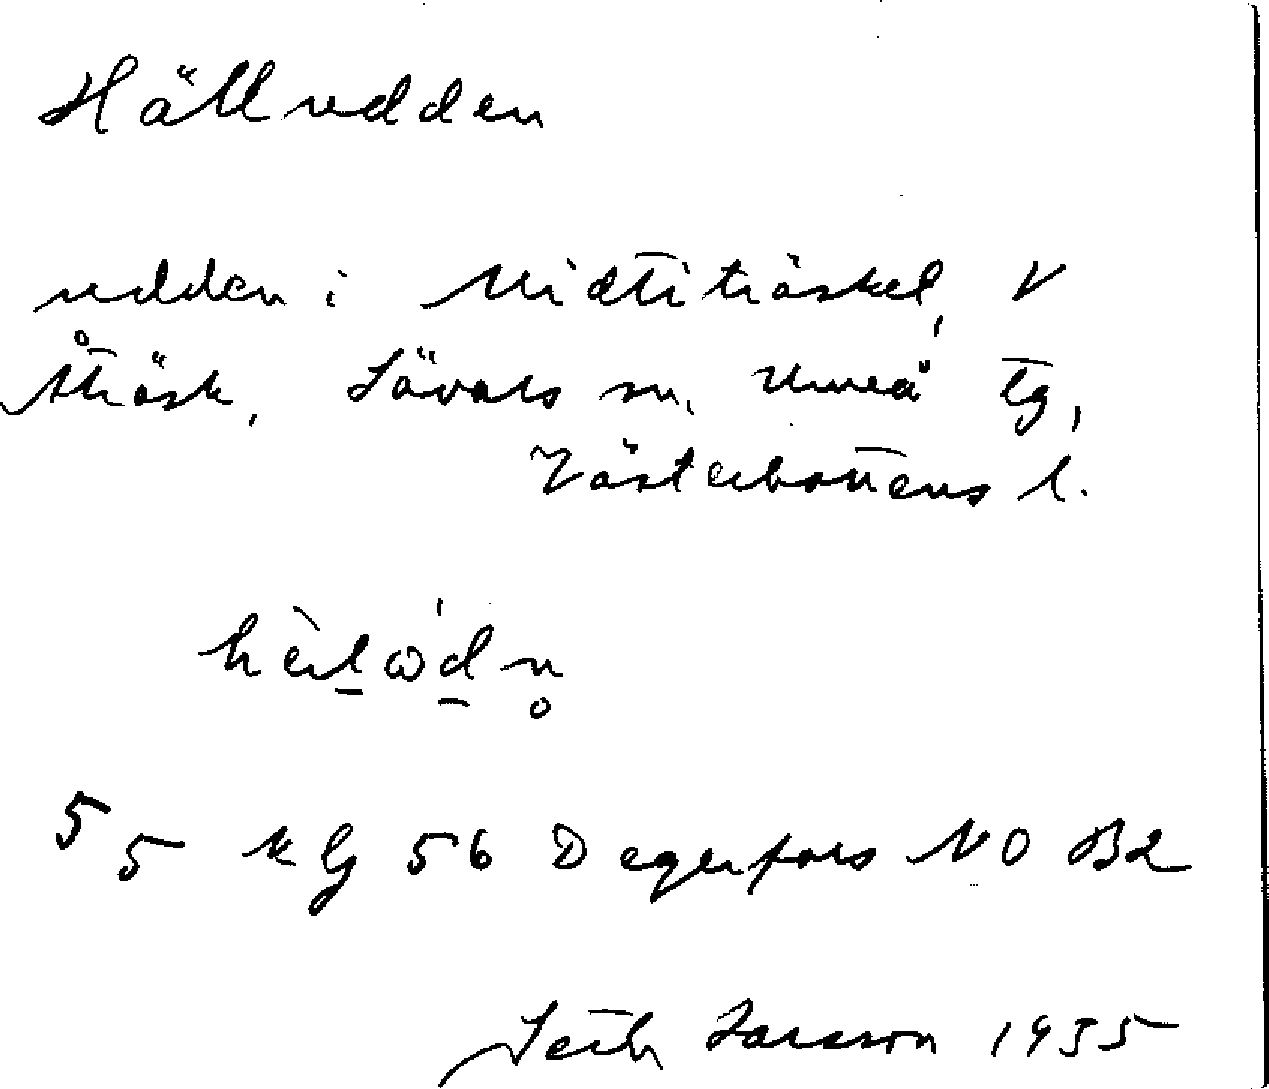 Hälludden
udden i Midtiträsket, V
Åträsk, Sävars sn, Umeå tg,
Västerbottens l.
5 5 kg 56 Degerfors NO B2
Seth Larsson 1935